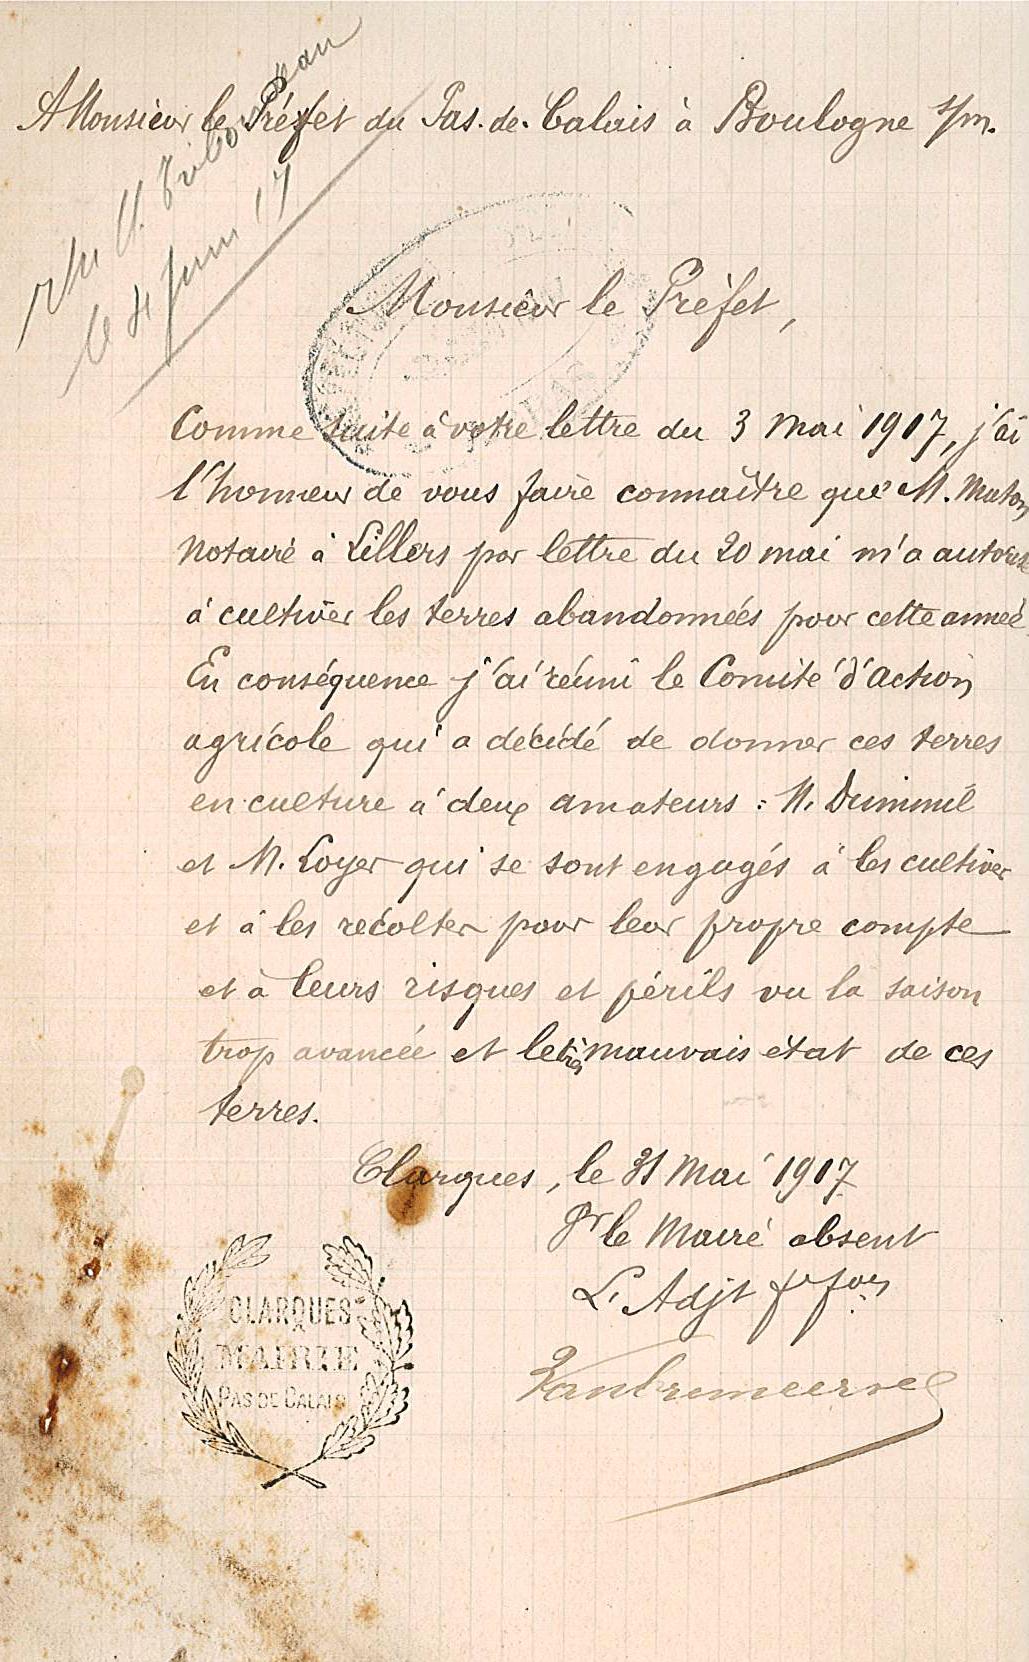 A Monsieur le Préfet du Pas-de-Calais à Boulogne s/m.
le 4 Juin 17
Monsieur le Préfet,
Comme suite à votre lettre du 3 Mai 1917, j'ai
l'honneur de vous faire connaître que M. Maton
Notaire à Lillers par lettre du 20 mai m'a autorisé
à cultiver les terres abandonnées pour cette année
En conséquence j'ai réuni le Comité d'Action
agricole qui a décidé de donner ces terres
en culture à deux amateurs : M.
et M. Loyer qui se sont engagés à les cultiver
et à les récolter pour leur propre compte
et à leurs risques et périls vu la saison
trop avancée et le très mauvais état de ces
terres.
Clarques, le 31 Mai 1917
Pr le Maire absent
L'Adjt fr fon
CLARQUES
MAIRIE
PAS DE CALAIS